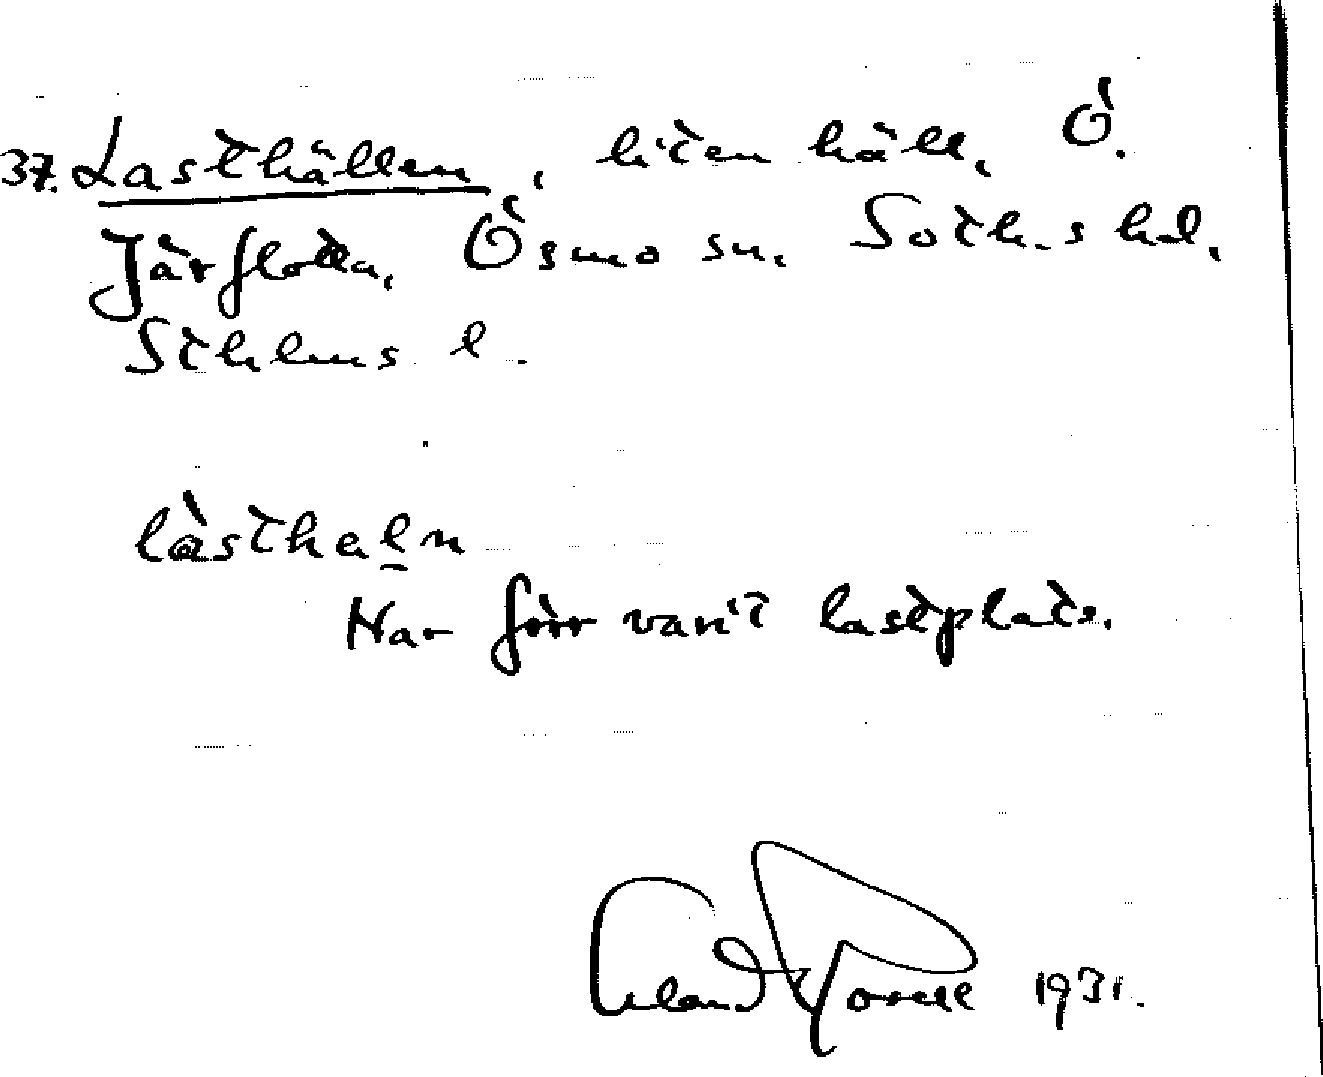 37. Lasthällen, liten häll, Ö.
Järflotta, Ösmo sn. Soth.s hd,
Sthlms l.
làsthaḷn
Har förr varit lastplats.
1931.